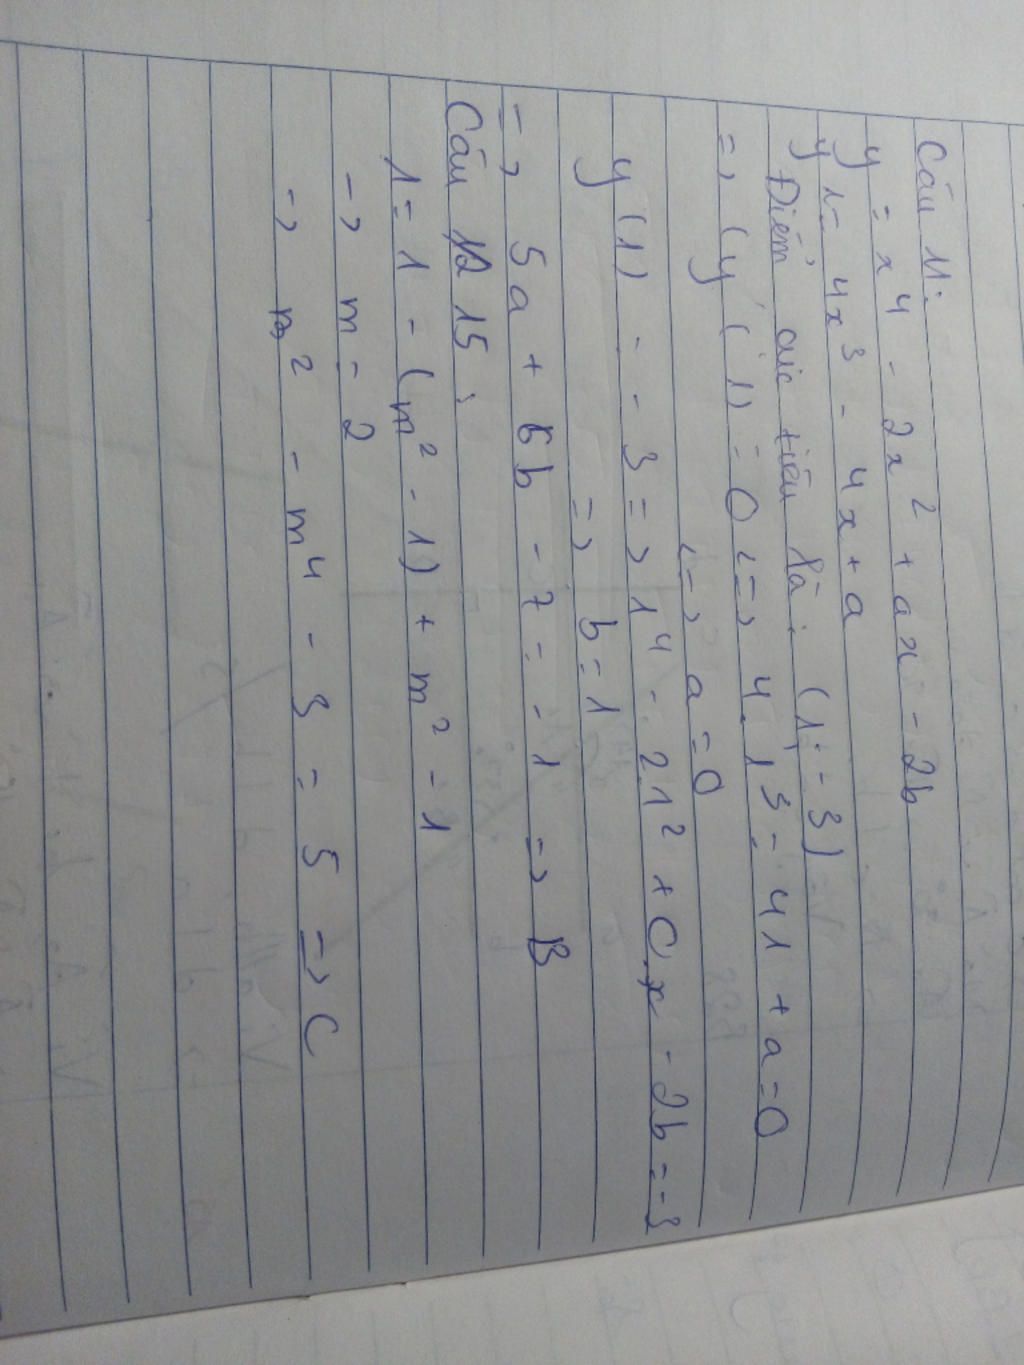 Câu 11:
y = x⁴ - 2x² + ax - 2b
y' = 4x³ - 4x + a
Điểm cực tiểu là: (1; -3)
=> (y'(1) = 0 <=> 4.1³ - 41 + a = 0
<=> a = 0
y(1) = -3 => 1⁴ - 2.1² + 0.x - 2b = -3
=> b = 1
=> 5a + 6b - 7 = -1 => B
Câu 15:
1 = 1 - (m² - 1) + m² - 1
-> m = 2
-> m² - m⁴ - 3 = 5 => C